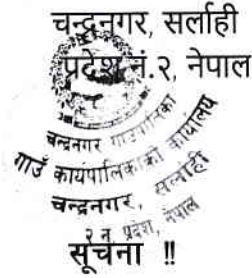 चन्द्रनगर, सर्लाही
प्रदेश नं.२, नेपाल
चन्द्रनगर गाउँपालिका
गाउँ कार्यपालिकाको कार्यालय
चन्द्रनगर, सर्लाही
२ नं प्रदेश, नेपाल
सूचना !!